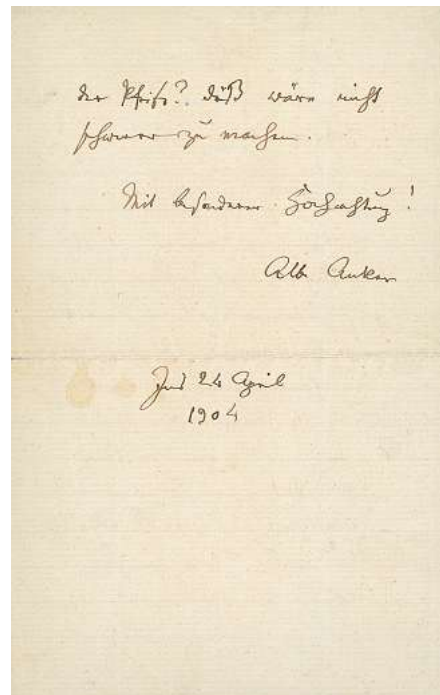 der Pfeife? daß wäre nicht
schwerer zu machen.
Mit besonderer Hochachtung!
Alb Anker
Ins 24 April
1904